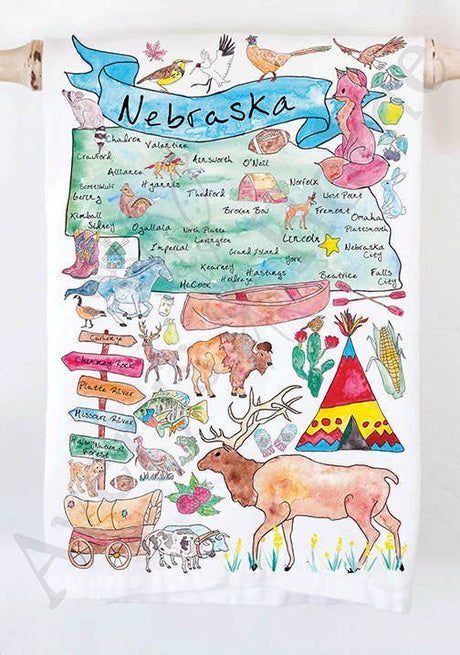 Nebraska
Chadron
Valentine
Crawford
Ainsworth
O'Neil
Alliance
Scottsbluff
Hyannis
Thedford
Norfolk
West Point
Gering
Broken Bow
Fremont
Omaha
Kimball
Sidney
Ogallala
North Platte
Lexington
Lincoln
Plattsmouth
Imperial
Grand Island
York
Nebraska City
Kearney
Hastings
Holdrege
Beatrice
Falls City
McCook
Chimney Rock
Platte River
Missouri River
Forest